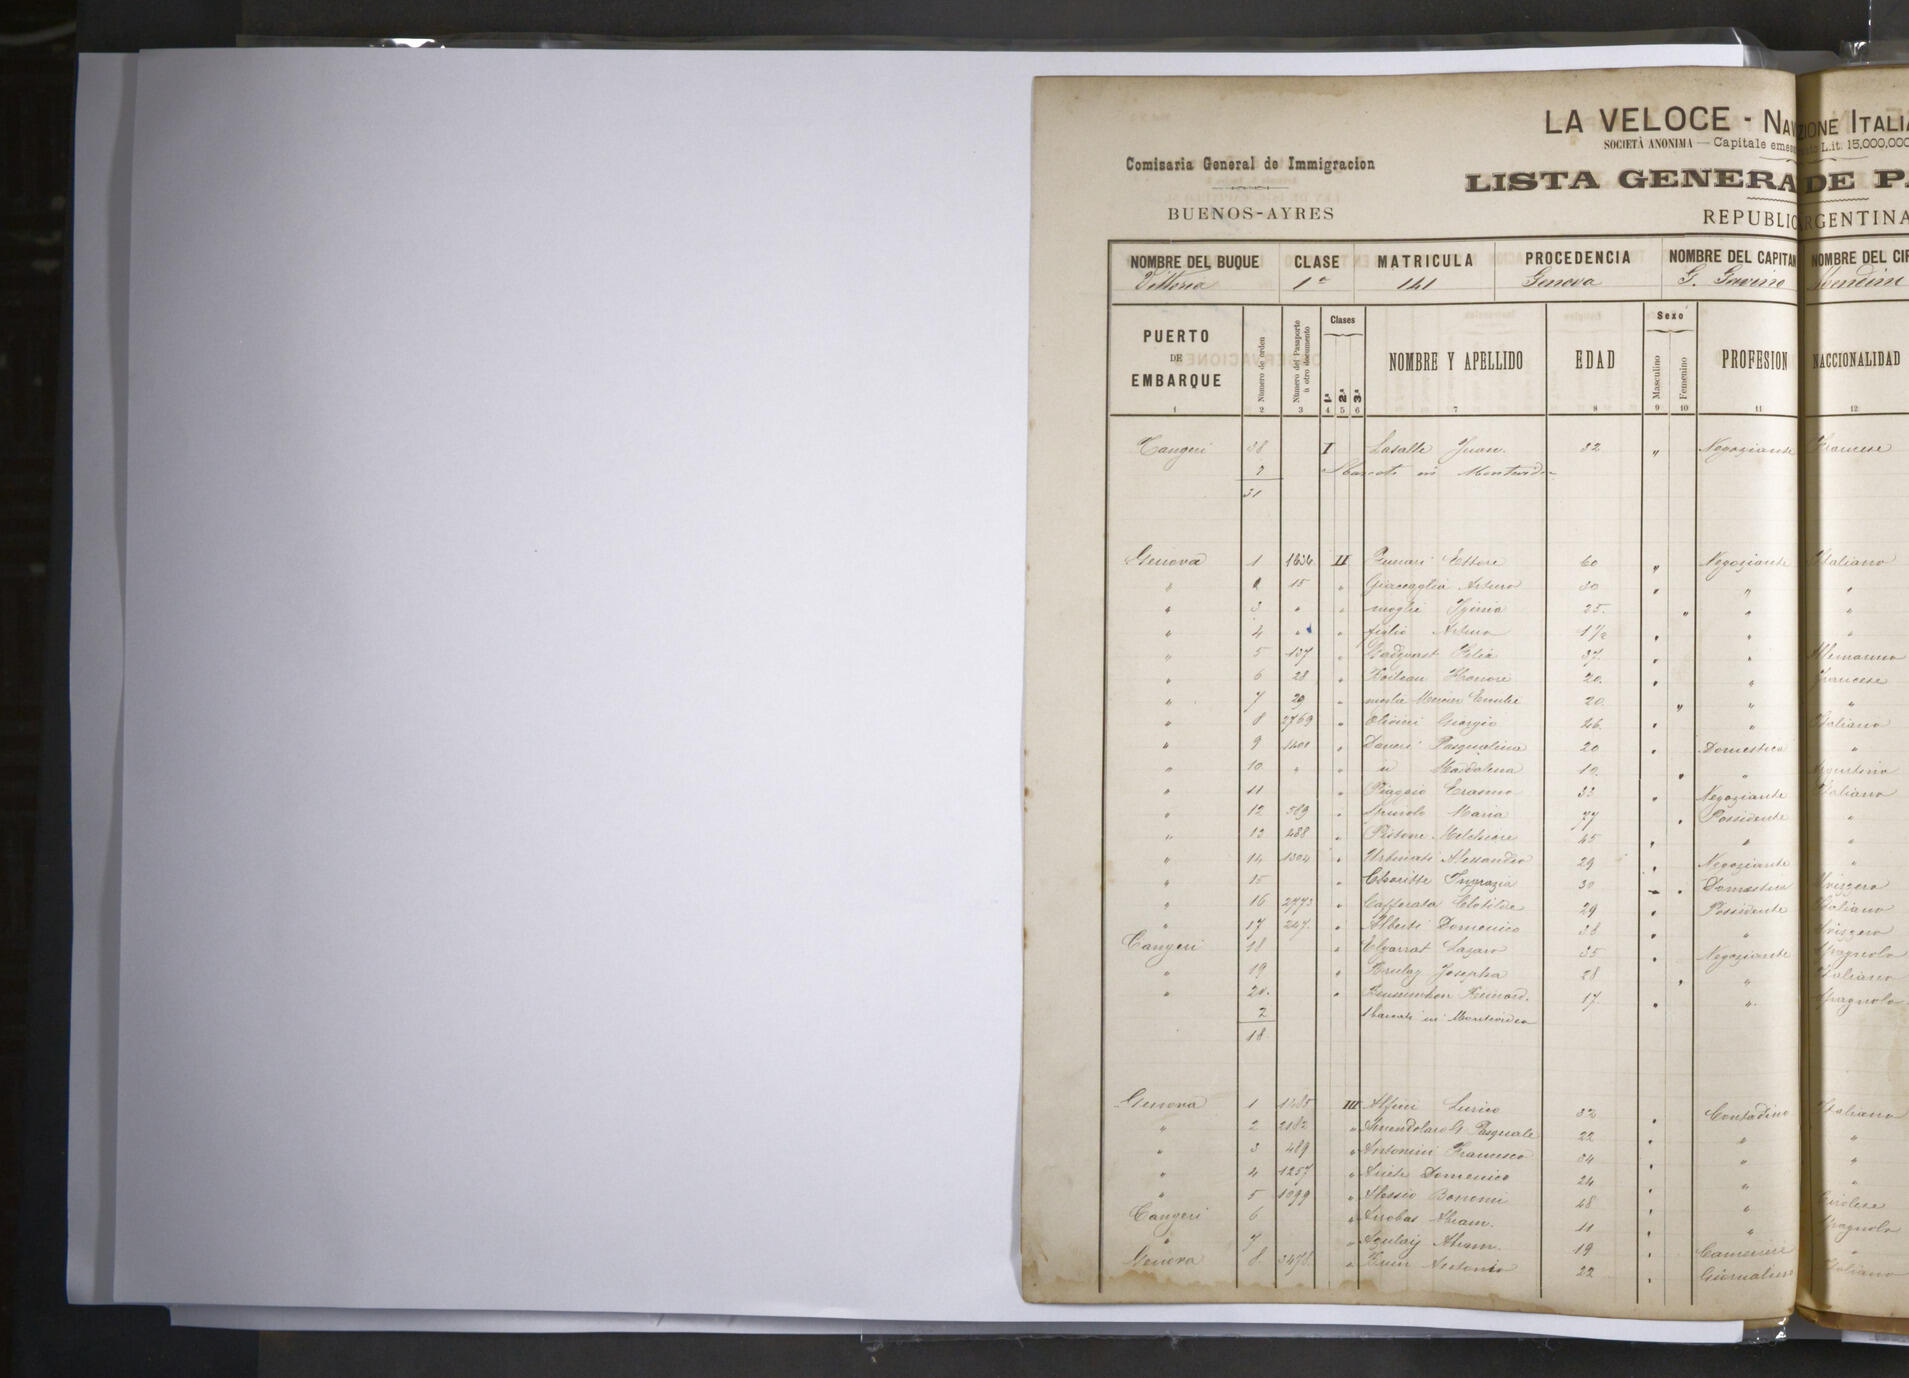 LA VELOCE - NAV ZIONE ITALIA
SOCIETÀ ANONIMA — Capitale emes L.it. 15,000,000
Comisaria General de Immigracion
LISTA GENERA DE PA
BUENOS-AYRES
REPUBLIC RGENTINA
NOMBRE DEL BUQUE CLASE MATRICULA PROCEDENCIA NOMBRE DEL CAPITAN NOMBRE DEL CIR
Vittoria 1a 141 Genova G. Gavino
PUERTO DE EMBARQUE Número de orden Número del Pasaporte ú otro documento Clases 1ª 2ª 3ª NOMBRE Y APELLIDO EDAD Sexo Masculino Femenino PROFESION NACCIONALIDAD
1 2 3 4 5 6 7 8 9 10 11 12
Tangeri 38 I Lasalle Juan. 32 " Negoziante Francese
7 Sbarcati in Montevideo
31
Genova 1 1634 II Ettore 60 " Negoziante Italiano
" 2 15 " Giacaglia Arturo 30 " " "
" 3 " " moglie Iginia 25. " " "
" 4 " " figlio Arturo 1 1/2 " " "
" 5 137 " 37. " " Alemanno
" 6 28 " Boileau Honoré 20. " " Francese
" 7 29 " moglie Mercier Emilie 20. " " "
" 8 2769 " Olivini Giorgio 26. " " Italiano
" 9 1401 " Daneri Pasqualina 20 " Domestica "
" 10 " " id Maddalena 10. " " Argentino
" 11 " Piaggio Erasmo 33 " Negoziante Italiano
" 12 589 " Spinolo Maria 77 " Possidente "
" 13 488 " Pistone Melchiore 45 " " "
" 14 1304 " Urbinati Alessandro 29 " Negoziante "
" 15 " Ingrazia 30 " Domestica Svizzera
" 16 2773 " Cafferata Clotilde 29 " Possidente Italiano
" 17 247. " Alberti Domenico 38 " " Svizzero
Tangeri 18 " Elgarrat Lazaro 35 " Negoziante Spagnolo
" 19 " Josepha 28 " " Italiano
" 20. " 17. " " Spagnolo
2 Sbarcati in Montevideo
18
Genova 1 1485 III Alfieri 32 " Contadino Italiano
" 2 2182 " Pasquale 22 " " "
" 3 489 " Antonini Francesco 34 " " "
" 4 1257 " Domenico 24 " " "
" 5 1099 " Alessio Bonomi 48 " " Tirolese
Tangeri 6 " Abram. 11 " " Spagnolo
" 7 " Abram. 19 " Camerieri "
Genova 8. 3478. " Antonio 22 " Giornaliere Italiano